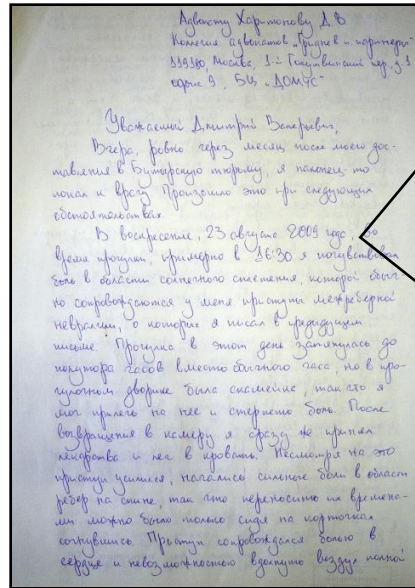 Адвокату Харитонову Д.В
Коллегия адвокатов "Гриднев и партнеры"
119180, Москва, 1-й Голутвинский пер, д.1
офис 9, БЦ "ДОМЧС"
Уважаемый Дмитрий Валерьевич,
Вчера, ровно через месяц после моего дос-
тавления в Бутырскую тюрьму, я наконец-то
попал к врачу. Произошло это при следующих
обстоятельствах.
В воскресение, 23 августа 2009 года, во
время прогулки, примерно в 16:30 я почувствовал
боль в области солнечного сплетения, которой обыч-
но сопровождаются у меня приступы межреберной
невралгии, о которых я писал в предыдущем
письме. Прогулка в этот день затянулась до
полутора часов вместо обычного часа, но в про-
гулочном дворике была скамейка, так что я
мог прилечь на нее и стерпеть боль. После
возвращения в камеру я сразу же принял
лекарства и лег в кровать. Несмотря на это
приступ усилился, начались сильные боли в области
ребер на спине, так что переносить их времена-
ми можно было только сидя на корточках
согнувшись. Приступ сопровождался болью в
сердце и невозможностью вдохнуть воздух полной